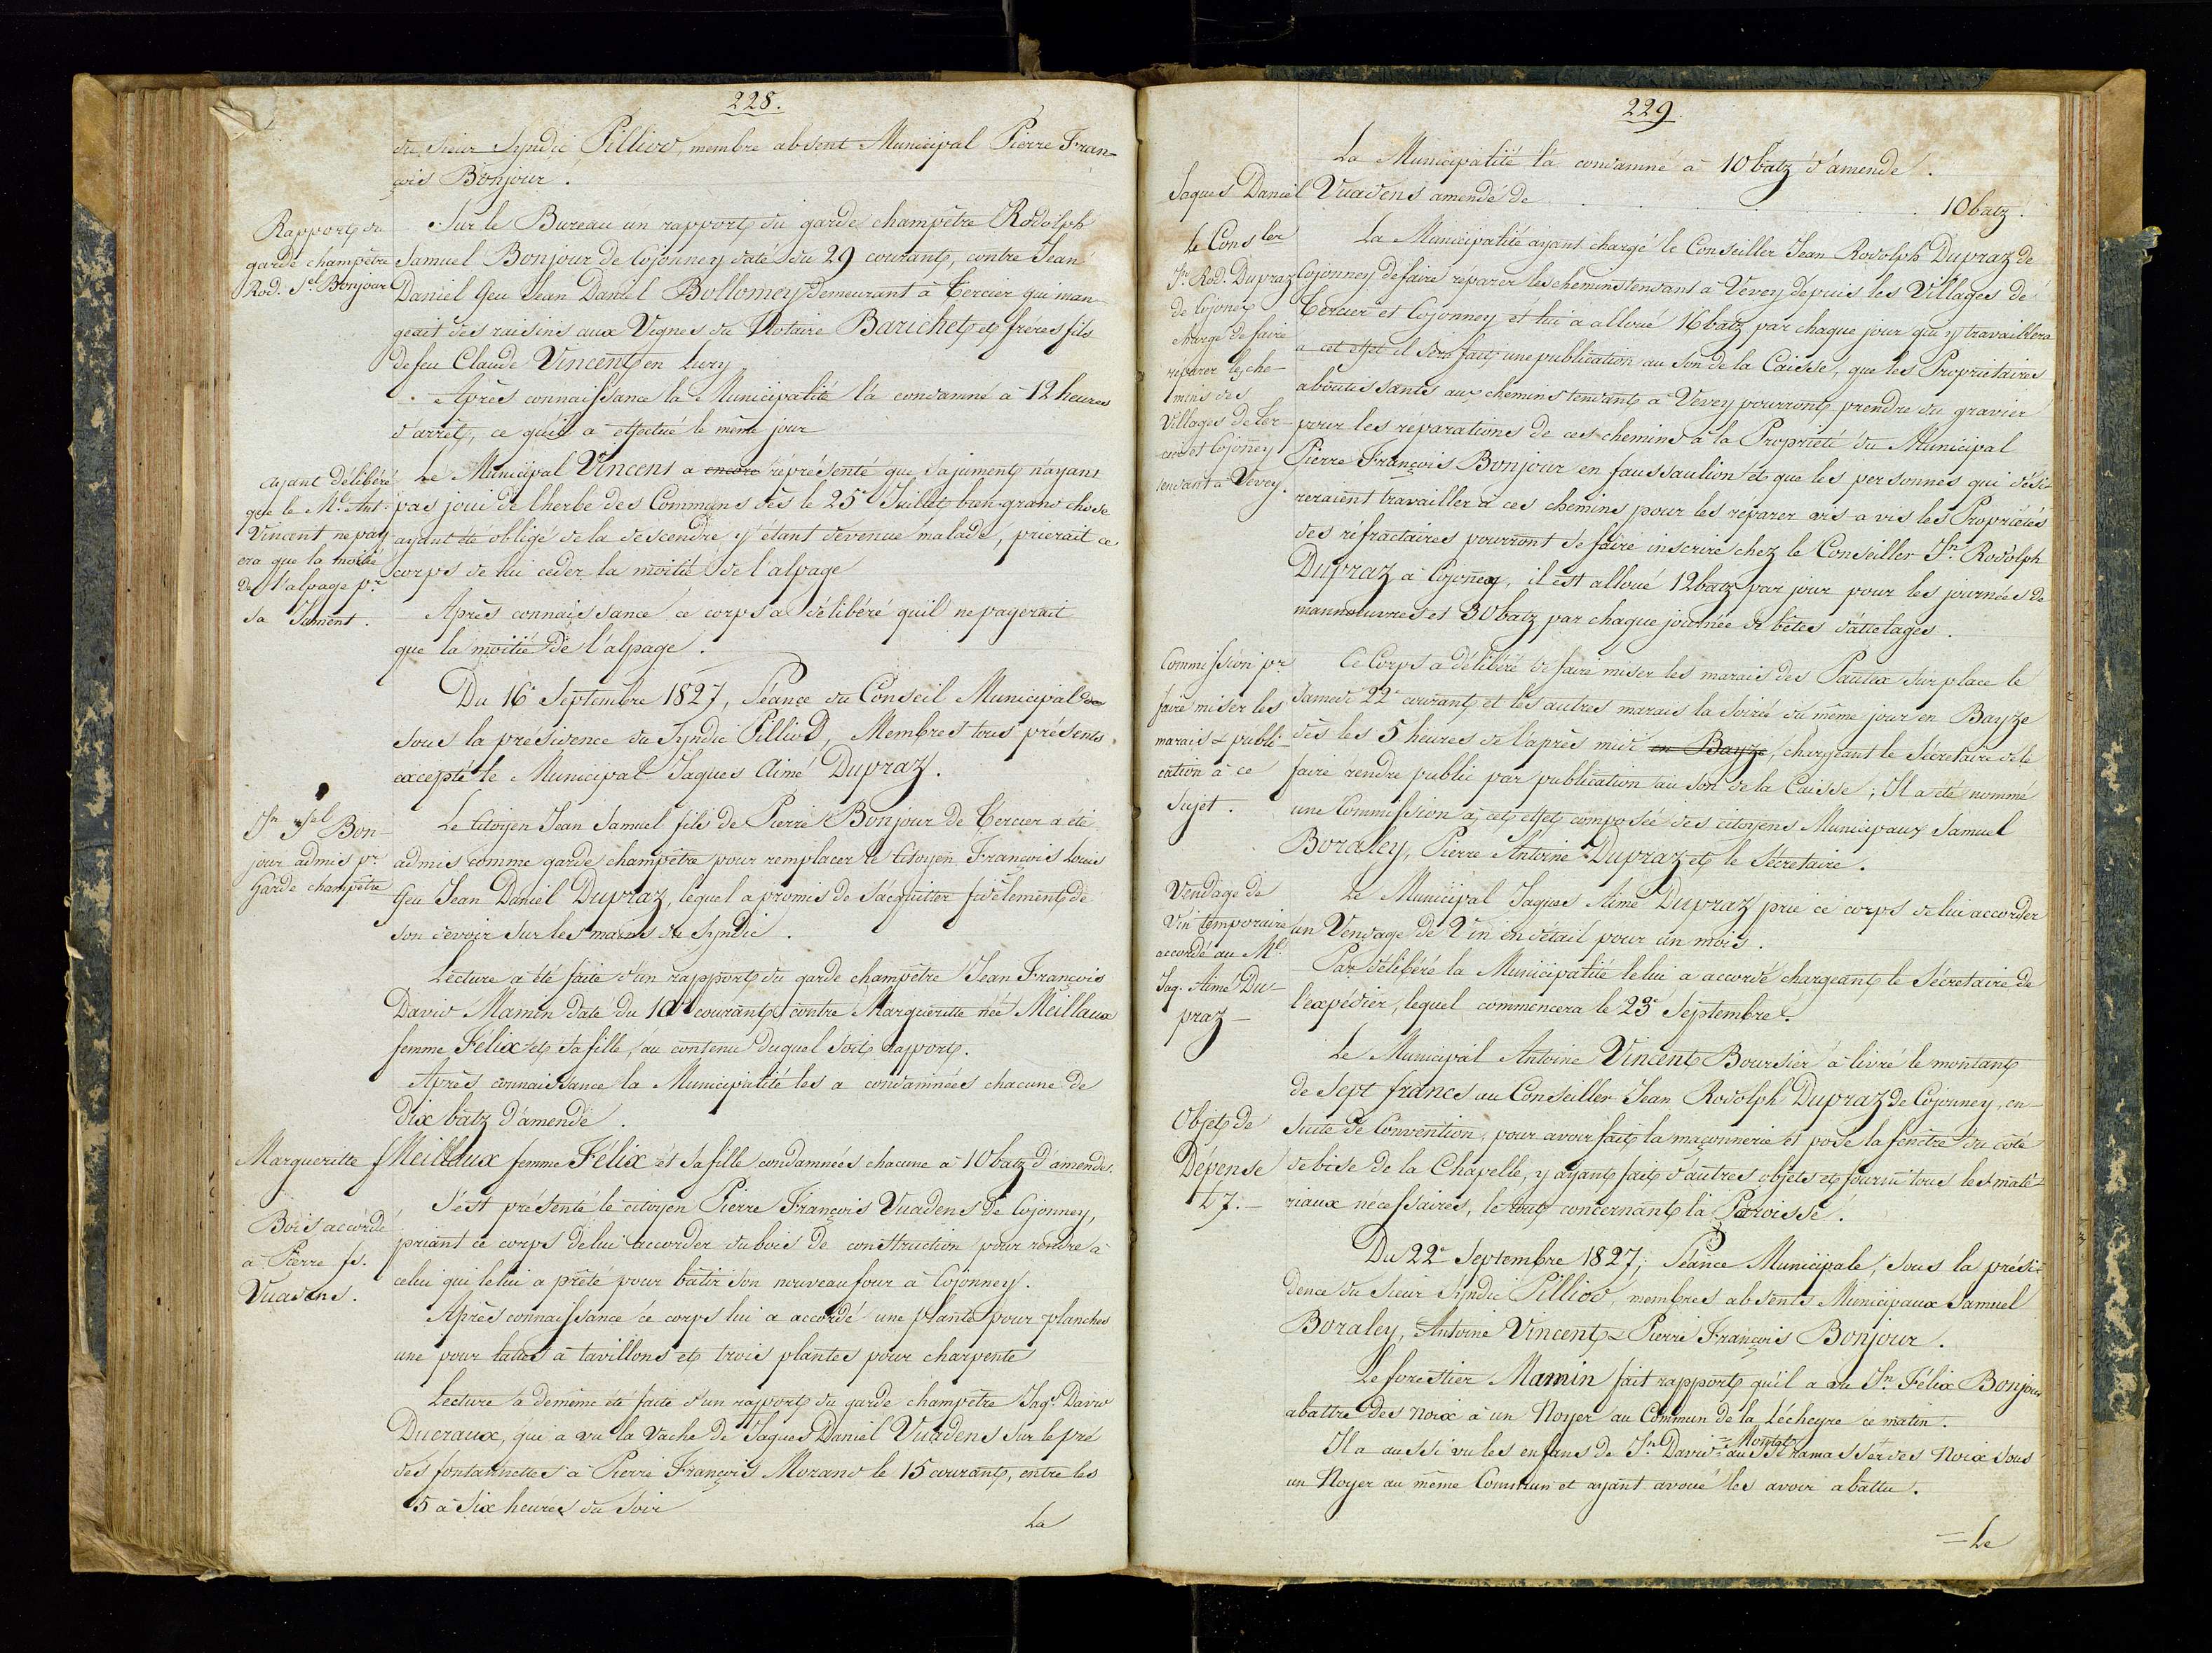 228.
du Sieur Syndic Pilliod, membre absent Municipal Pierre Fran-
çois Bonjour.
Rapport du
garde champêtre
Rod. Sl. Bonjour
Sur le Bureau un rapport du garde champêtre Rodolph
Samuel Bonjour de Cojonney daté du 29 courant, contre Jean
Daniel feu Jean Daniel Bollomey demeurant à Tercier qui man
geait des raisins aux Vignes du Notaire Barichet et frères fils
de feu Claude Vincent en Lury
Après connaissance la Municipalité l'a condamné à 12 heures
d'arrêt, ce qu'il a effectué le même jour
ayant délibéré
que le Ml. Ant.
Vincent ne pay
era que la moitié
de l'alpage pr.
sa Jument.
Le Municipal Vincent a encore représenté que sa jument n'ayant
pas joui de l'herbe des Communs dès le 25e Juillet bien grand chose
ayant été obligé de la descendre y étant devenue malade, prierait ce
corps de lui céder la moitié de l'alpage
Après connaissance ce corps a délibéré qu'il ne payerait
que la moitié de l'alpage.
Du 16e Septembre 1827, Séance du Conseil Municipal
sous la présidence du Syndic Pilliod, Membres tous présents
excepté le Municipal Jaques Aimé Dupraz.
Jn Sel Bon-
jour admis pr.
Garde champêtre
Le Citoyen Jean Samuel fils de Pierre Bonjour de Tercier a été
admis comme garde champêtre pour remplacer le Citoyen François Louis
feu Jean Daniel Dupraz, lequel a promis de s'acquitter fidèlement de
son devoir sur les mains du Syndic.
Lecture a été faite d'un rapport du garde champêtre Jean François
David Mamin daté du 10e courant contre Margueritte née Meillaux
femme Félix et sa fille, au contenu duquel soit rapport.
Après connaissance la Municipalité les a condamnées chacune de
dix batz d'amende.
Margueritte f Meillaux femme Félix et sa fille condamnées chacune à 10 batz d'amende.
Bois accordé
à Pierre fs.
Vuadens.
S'est présenté le citoyen Pierre François Vuadens de Cojonney,
priant ce corps de lui accorder du bois de construction pour rendre à
celui qui le lui a prêté pour bâtir son nouveau four à Cojonney.
Après connaissance ce corps lui a accordé une plante pour planches
une pour lattes à tavillons et trois plantes pour charpente
Lecture a de même été faite d'un rapport du garde champêtre Jaqs David
Ducraux, qui a vu la Vache de Jaques Daniel Vuadens sur le pré
des fontannettes à Pierre François Morand le 15 courant, entre les
5 à six heures du soir
La
229.
La Municipalité l'a condamné à 10 batz d'amende.
Jaques Daniel Vuadens amendé de . . . . . . 10 batz.
Le Conser
Jn. Rod. Dupraz
de Cojoney
chargé de faire
réparer les che-
mins des
Villages de Ter-
cier et Cojonney
tendant à Vevey.
La Municipalité ayant chargé le Conseiller Jean Rodolph Dupraz de
Cojonney de faire réparer les chemins tendant à Vevey depuis les Villages de
Tercier et Cojonney et lui a alloué 16 batz par chaque jour qu'y travaillera
a cet effet il sera fait une publication au son de la Caisse, que les Propriétaires
aboutissants aux chemins tendant à Vevey pourront prendre du gravier
pour les réparations de ces chemins à la Propriété du Municipal
Pierre François Bonjour en faussaulion et que les personnes qui dési-
reraient travailler à ces chemins pour les réparer vis a vis les Propriétés
des réfractaires pourront se faire inscrire chez le Conseiller Jn. Rodolph
Dupraz à Cojoney, il est alloué 12 batz par jour pour les journées de
mannoeuvres et 30 batz par chaque journée de bêtes d'attelages.
Commission pr
faire miser les
marais & publi-
cation à ce
sujet.
Ce Corps a délibéré de faire miser les marais des Pautex sur place le
Samedi 22e courant et les autres marais la soirée du même jour en Bayze
dès les 5 heures de l'après midi en Bayze, chargeant le Sécretaire de le
faire rendre public par publication au son de la Caisse; Il a été nommé
une Commission à cet effet composée des citoyens Municipaux Samuel
Boraley, Pierre Antoine Dupraz et le Sécretaire.
Vendage de
Vin temporaire
accordé au Ml.
Jaq. Aimé Du-
praz
Le Municipal Jaques Aimé Dupraz prie ce corps de lui accorder
un Vendage de Vin en détail pour un mois.
Par délibéré la Municipalité le lui a accordé chargeant le Sécretaire de
l'expédier, lequel commencera le 23e Septembre.
Objet de
Dépense
L7.-
Le Municipal Antoine Vincent Boursier a livré le montant
de sept francs au Conseiller Jean Rodolph Dupraz de Cojonney, en-
suite de Convention, pour avoir fait la maçonnerie et posé la fenêtre du côté
de bise de la Chapelle, y ayant fait d'autres objets et fourni tous les maté-
riaux nécessaires, le tout concernant la Paroisse.
Du 22e Septembre 1827; Séance Municipale, sous la prési-
dence du Sieur Syndic Pilliod, membres absents Municipaux Samuel
Boraley, Antoine Vincent & Pierre François Bonjour.
Le forestier Mamin fait rapport qu'il a vu Jn. Félix Bonjour
abattre des noix à un Noyer au Commun de la Lécheyre ce matin.
Il a aussi vu les enfans de Jn David Montet aussi ramasser des Noix sous
un Noyer au même Commun et ayant avoué les avoir abattu.
= Le